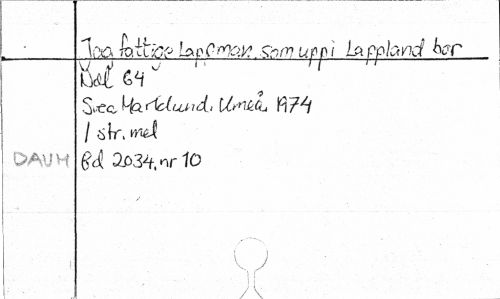 Jag fattige Lappman, som uppi Lappland bor
Nol 64
Svea Marklund, Umeå, 1974
1 str. mel
DAUM Bd 2034, nr 10